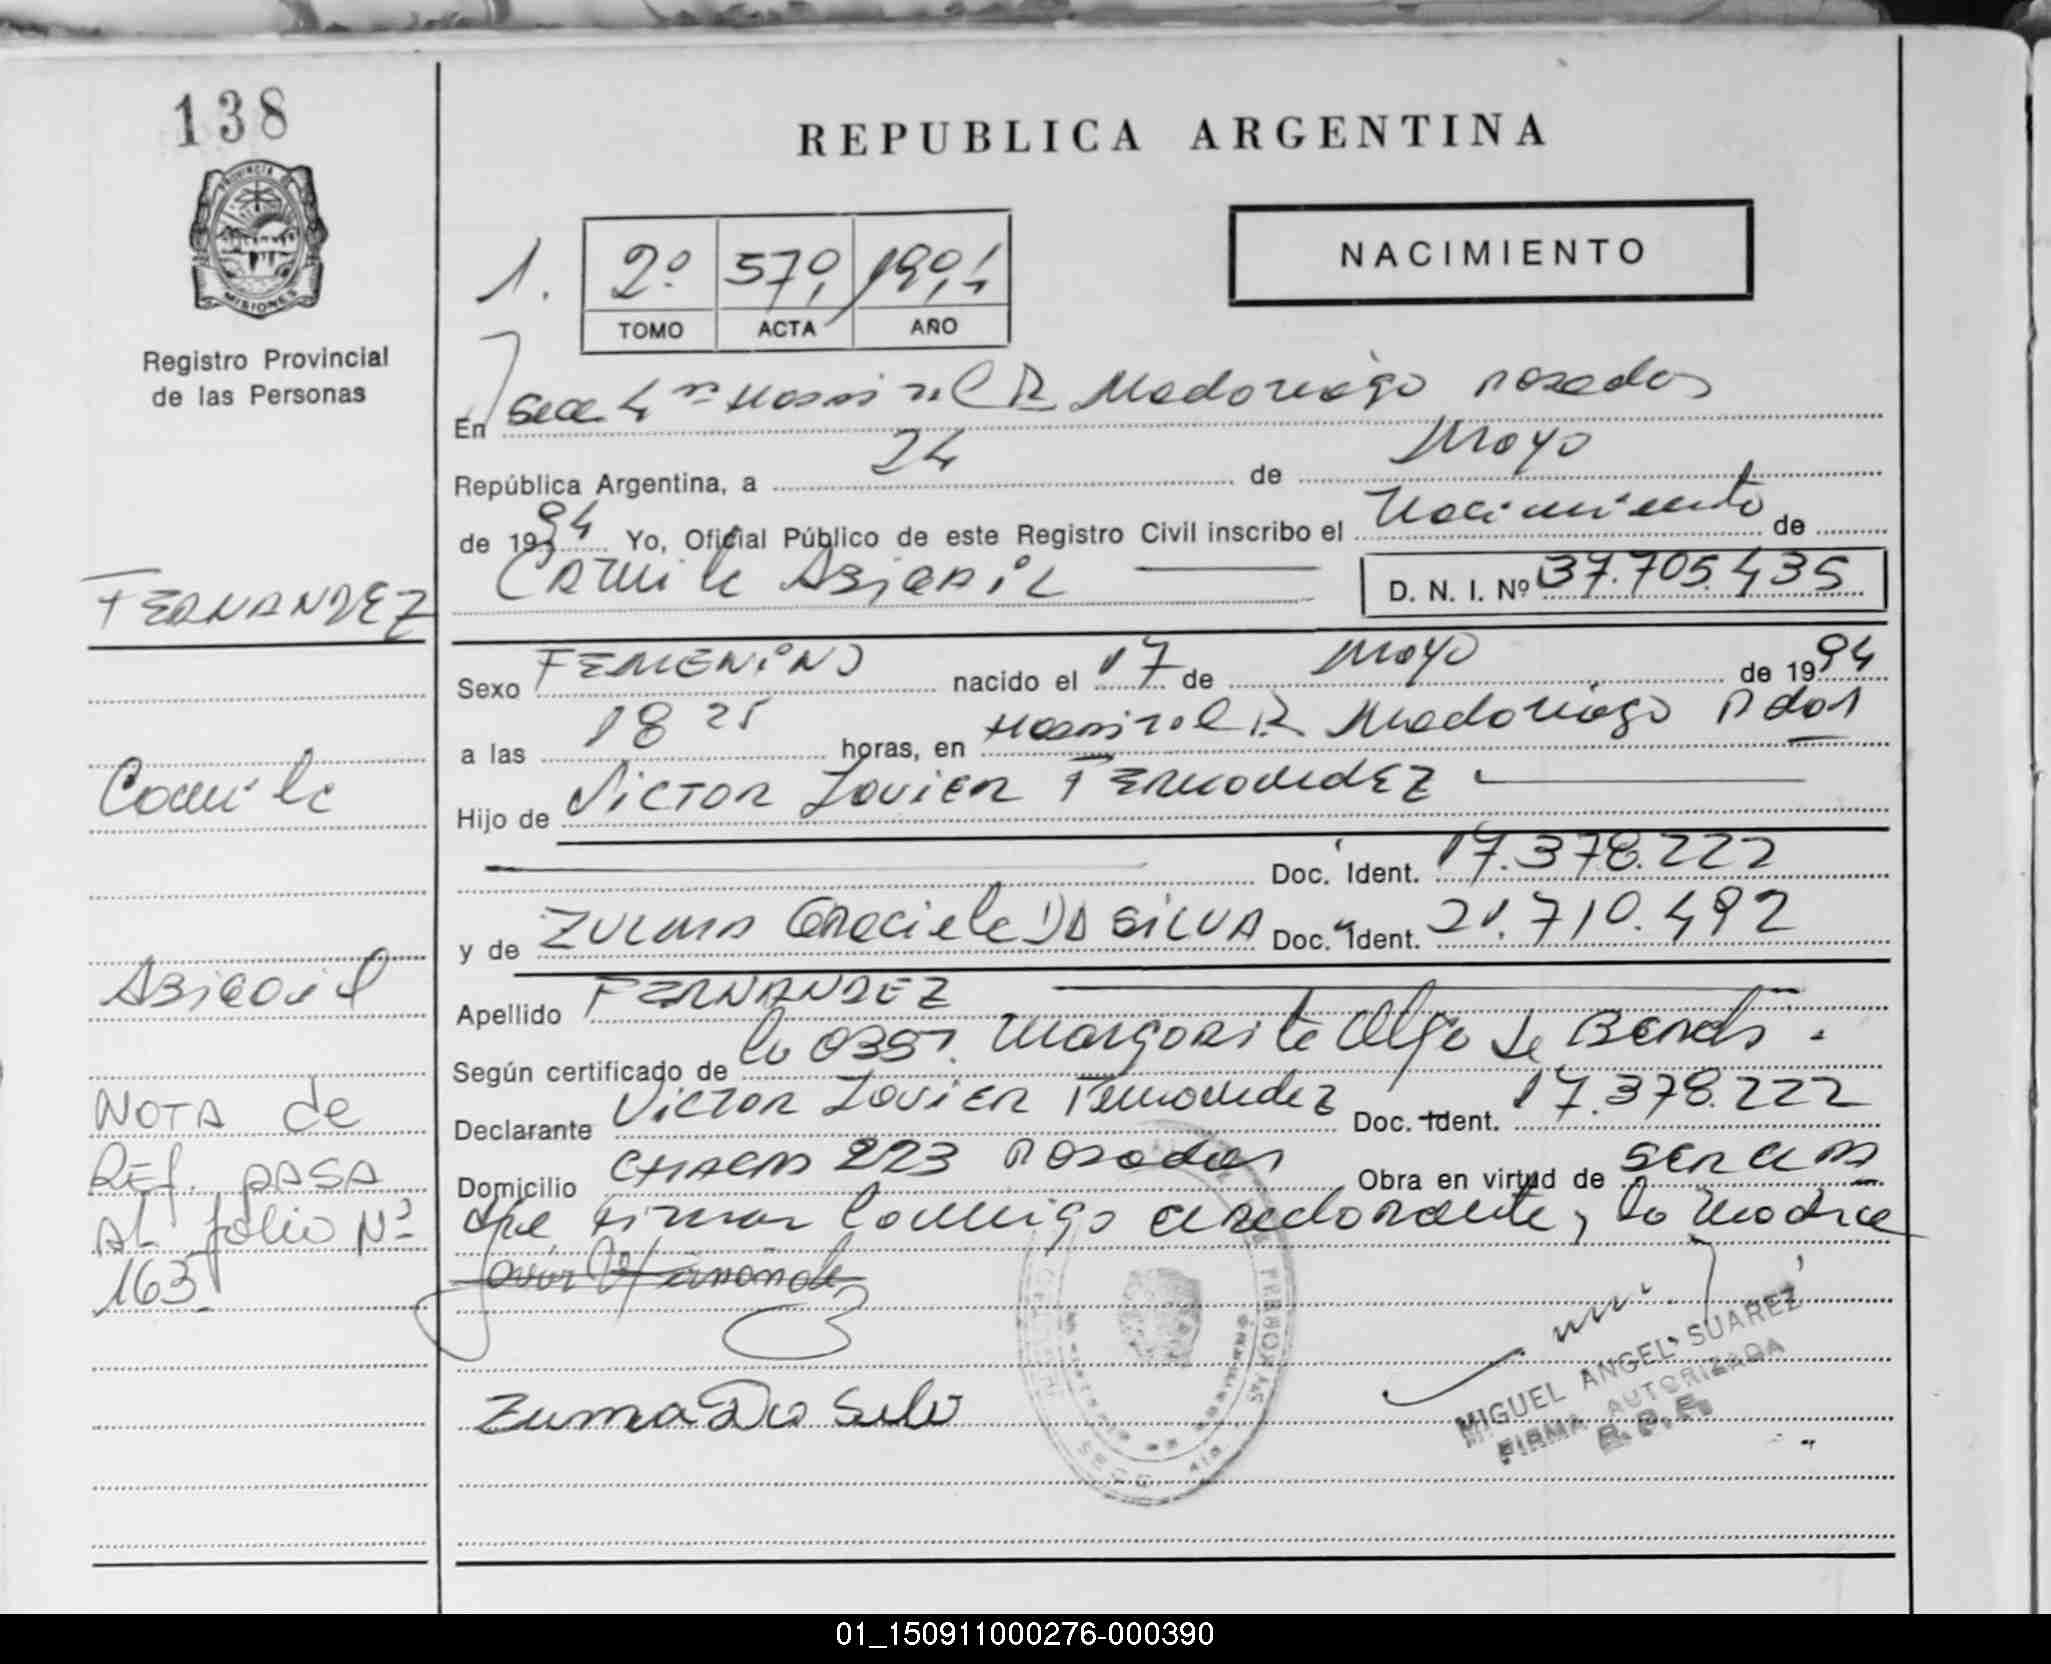 138
REPUBLICA ARGENTINA
PROVINCIA DE
MISIONES
Registro Provincial
de las Personas
NACIMIENTO
1. 2º 570 1994
TOMO ACTA AÑO
En Secc 4ª Hospital R Madariaga Posadas
República Argentina, a 24 de Mayo
de 1994 Yo, Oficial Público de este Registro Civil inscribo el Nacimiento de
Camila Abigail D. N. I. Nº 37.705.435
FERNANDEZ
Sexo FEMENINO nacido el 17 de Mayo de 1994
a las 18 25 horas, en Hospital R. Madariaga Pdas
Camila
Hijo de Victor Javier FERNANDEZ
Doc. Ident. 17.378.222
y de ZULMA Graciela DA SILVA Doc. Ident. 21.710.492
Abigail
Apellido FERNANDEZ
Según certificado de la Obst. Margarita Olga de
Declarante Victor Javier Fernandez Doc. Ident. 17.378.222
NOTA de
Ref. PASA
AL folio Nº
163
Domicilio CHACRA 223 Posadas Obra en virtud de SER EL PA
dre, Firman Conmigo el declarante, la Madre
Javier V Fernandez
Zulma Da Silva
MIGUEL ANGEL SUAREZ
FIRMA AUTORIZADA
R. P. P.
01_150911000276-000390